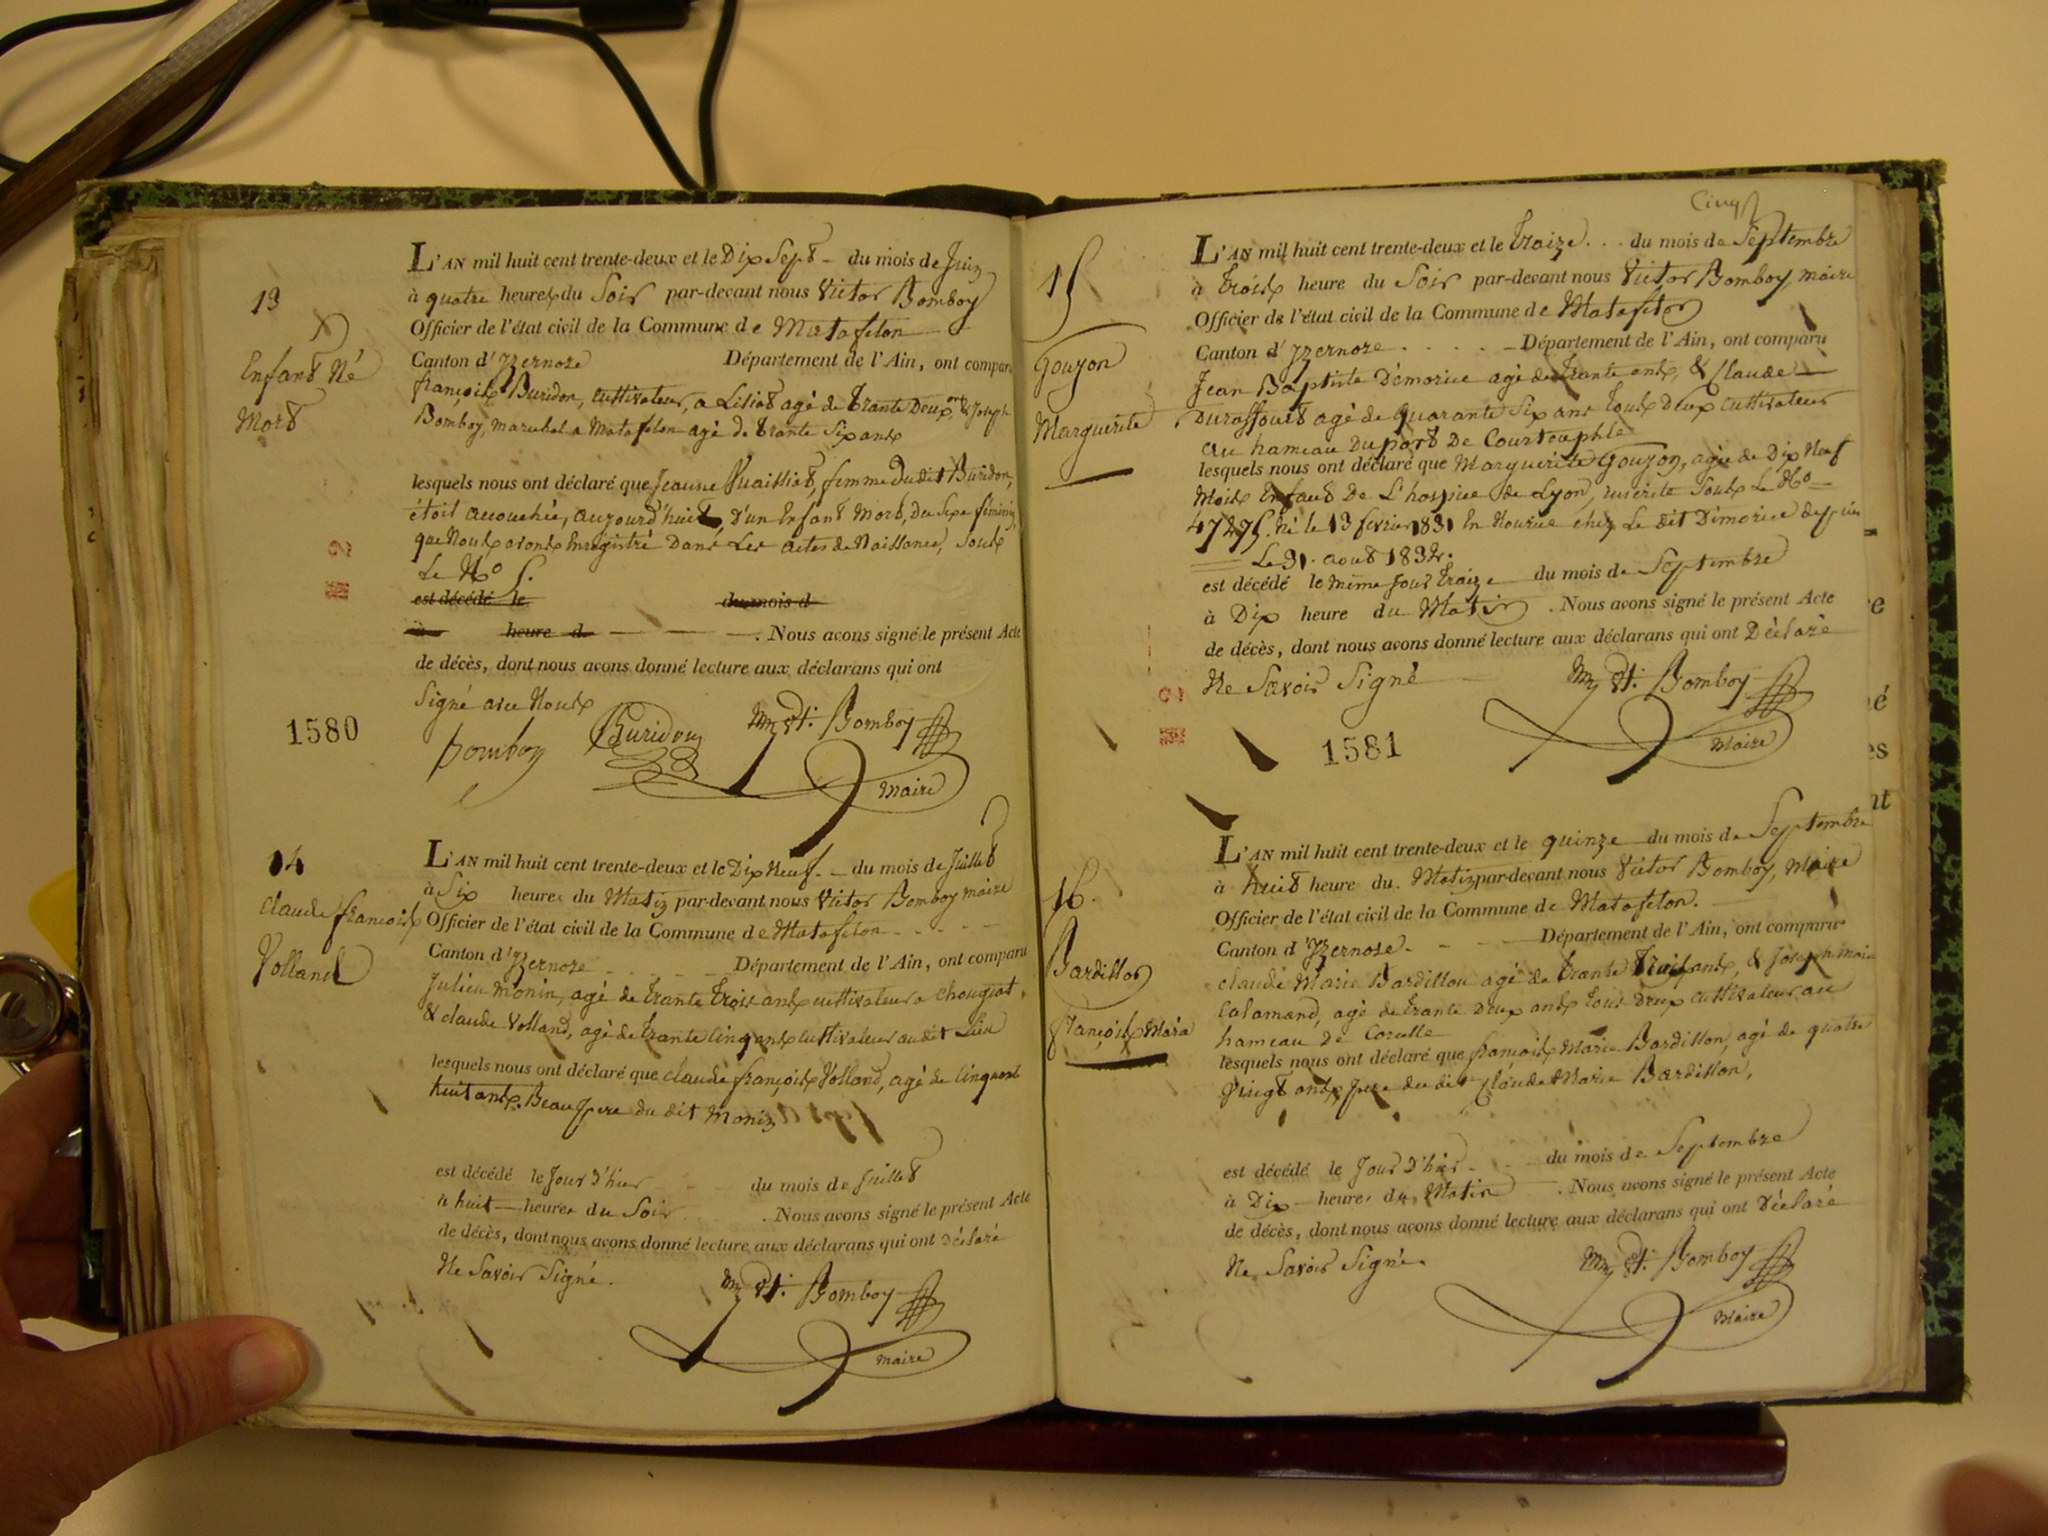 13
Enfant Né
Mort
L'AN mil huit cent trente-deux et le Dix Sept du mois de Juin
à quatre heures du Soir par-devant nous Victor Bomboy
Officier de l'état civil de la Commune de Matafelon
Canton d'Yzernore Département de l'Ain, ont comparu
françois Buridon, cultivateur, a agé de trante Deux ans & Joseph
Bomboy, marechal a Matafelon agé de trante Six ans
lesquels nous ont déclaré que Jeanne femme du dit Buridon,
étoit acouchée, aujourd'hui, D'un Enfant Mort, du Sexe féminin,
que Nous avons Enregistré Dans Les actes de Naissance, Sous
Le No 5.
est décédé le du mois d
à heure d . Nous avons signé le présent Acte
de décès, dont nous avons donné lecture aux déclarans qui ont
Signé avec Nous
1580
bomboy Buridon Bomboy
Maire
14
Claude françois
Volland
L'AN mil huit cent trente-deux et le Dix Neuf du mois de Juillet
à Six heures du Matin par-devant nous Victor Bomboy maire
Officier de l'état civil de la Commune de Matafelon
Canton d'Yzernore Département de l'Ain, ont comparu
Julien Monin, agé de trante trois ans cultivateur a Chougeat,
& claude Volland, agé de trante Cinq ans cultivateur au dit Lieu
lesquels nous ont déclaré que claude françois Volland, agé de Cinquant
huit ans. Beau pere du dit Monin
est décédé le Jour d'hier du mois de Juillet
à huit heures du Soir . Nous avons signé le présent Acte
de décès, dont nous avons donné lecture aux déclarans qui ont Déclaré
Ne Savoir Signé.
Bomboy
maire
Cinq
15
Gouzon
Marguerite
L'AN mil huit cent trente-deux et le traize du mois de Septembre
à trois heure du Soir par-devant nous Victor Bomboy maire
Officier de l'état civil de la Commune de Matafelon
Canton d'Yzernore Département de l'Ain, ont comparu
Jean Baptiste Démorice agé de trante ans, & Claude
Duraffourt agé de quarante Six ans tous Deux cultivateur
au hameau Du port De Courtouphle
lesquels nous ont déclaré que Marguérite Gouzon, agée de Dix Neuf
Mois Enfant De L'hospice de Lyon, inscrite Sous Le No
47275. Né le 13 fevrier 1831 En Nourice chez Le dit Démorice depuis
Le 31 aout 1832.
est décédé le même jour traize du mois de Septembre
à Dix heure du Matin . Nous avons signé le présent Acte
de décès, dont nous avons donné lecture aux déclarans qui ont Déclaré
Ne Savoir Signé
Bomboy
Maire
1581
16.
Bardillon
françois Marie
L'AN mil huit cent trente-deux et le quinze du mois de Septembre
à huit heure du Matin par-devant nous Victor Bomboy, Maire
Officier de l'état civil de la Commune de Matafelon.
Canton d'Yzernore. Département de l'Ain, ont comparu
claude Marie Bardillon agé de trante trois ans, & Joseph marie
Calamand, agé de trante Deux ans tous Deux cultivateur au
hameau de Corcelle
lesquels nous ont déclaré que françois Marie Bardillon, agé de quatre
Vingt ans, pere du dit Claude Marie Bardillon,
est décédé le Jour d'hier du mois de Septembre
à Dix heures du Matin . Nous avons signé le présent Acte
de décès, dont nous avons donné lecture aux déclarans qui ont Déclaré
Ne Savoir Signé.
Bomboy
Maire